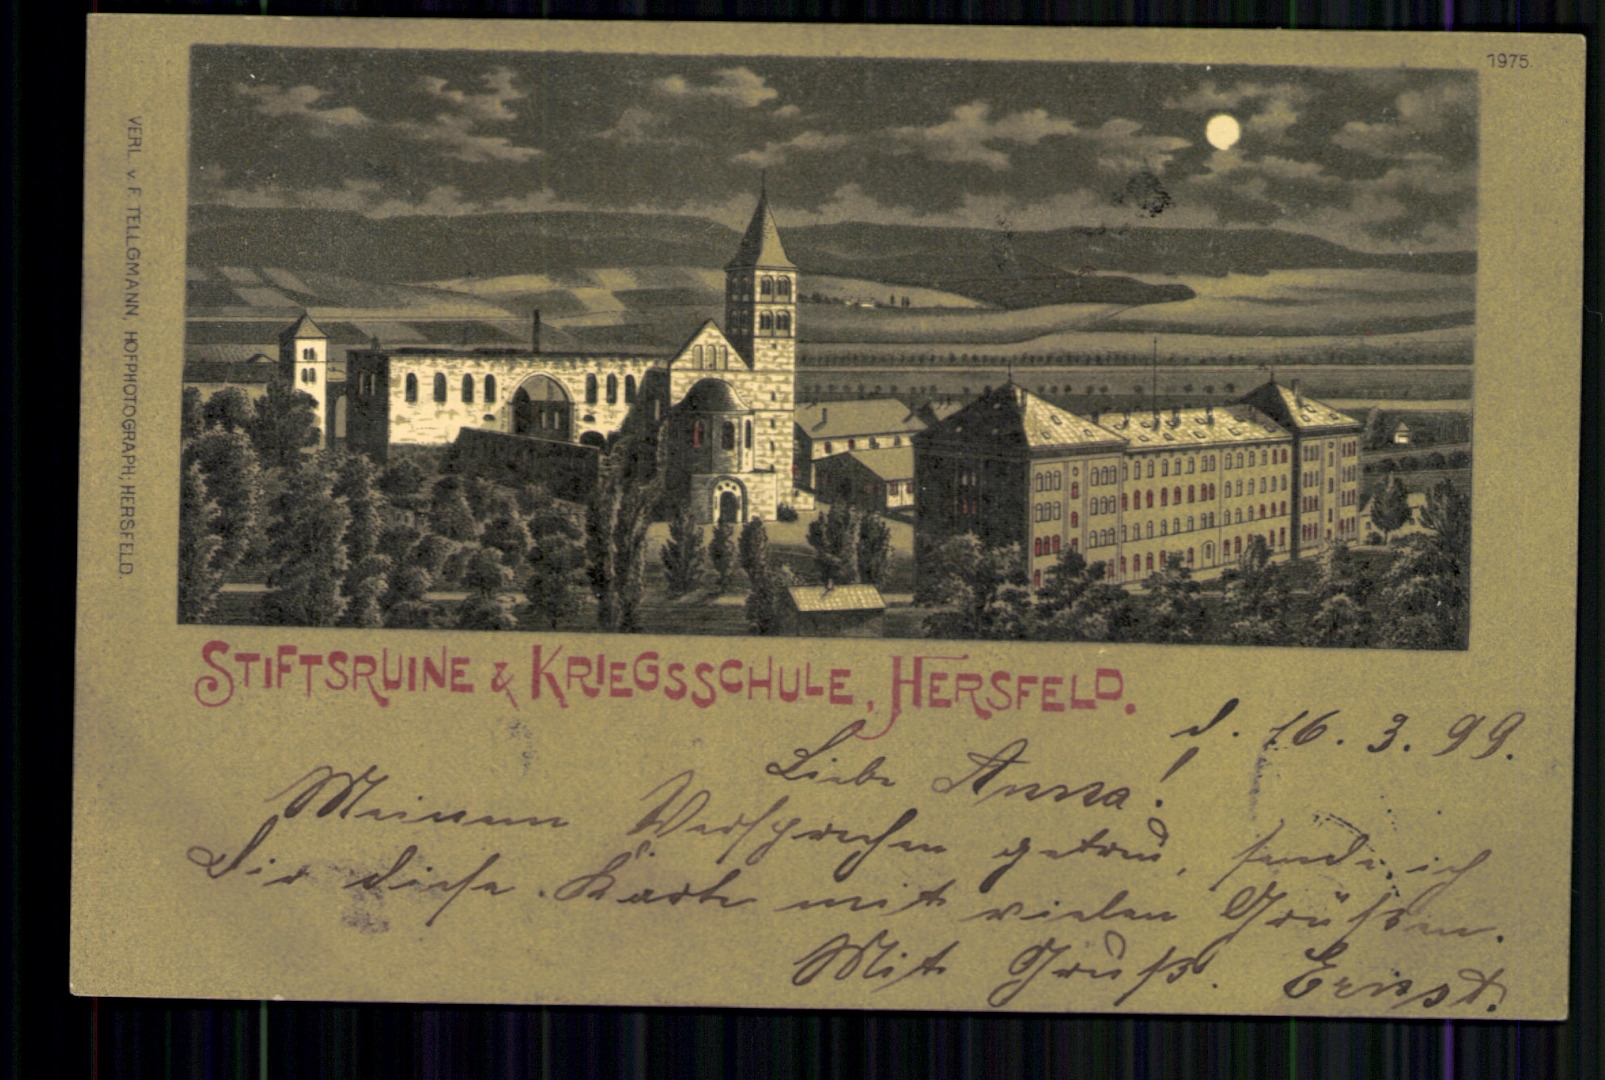 1975.
VERL. v. F. TELLGMANN, HOFPHOTOGRAPH; HERSFELD.
STIFTSRUINE & KRIEGSSCHULE, HERSFELD.
d. 16. 3. 99.
Liebe Anna!
Meinem Versprechen getreu, sende ich
Dir diese Karte mit vielen Grüßen.
Mit Gruß. Ernst.